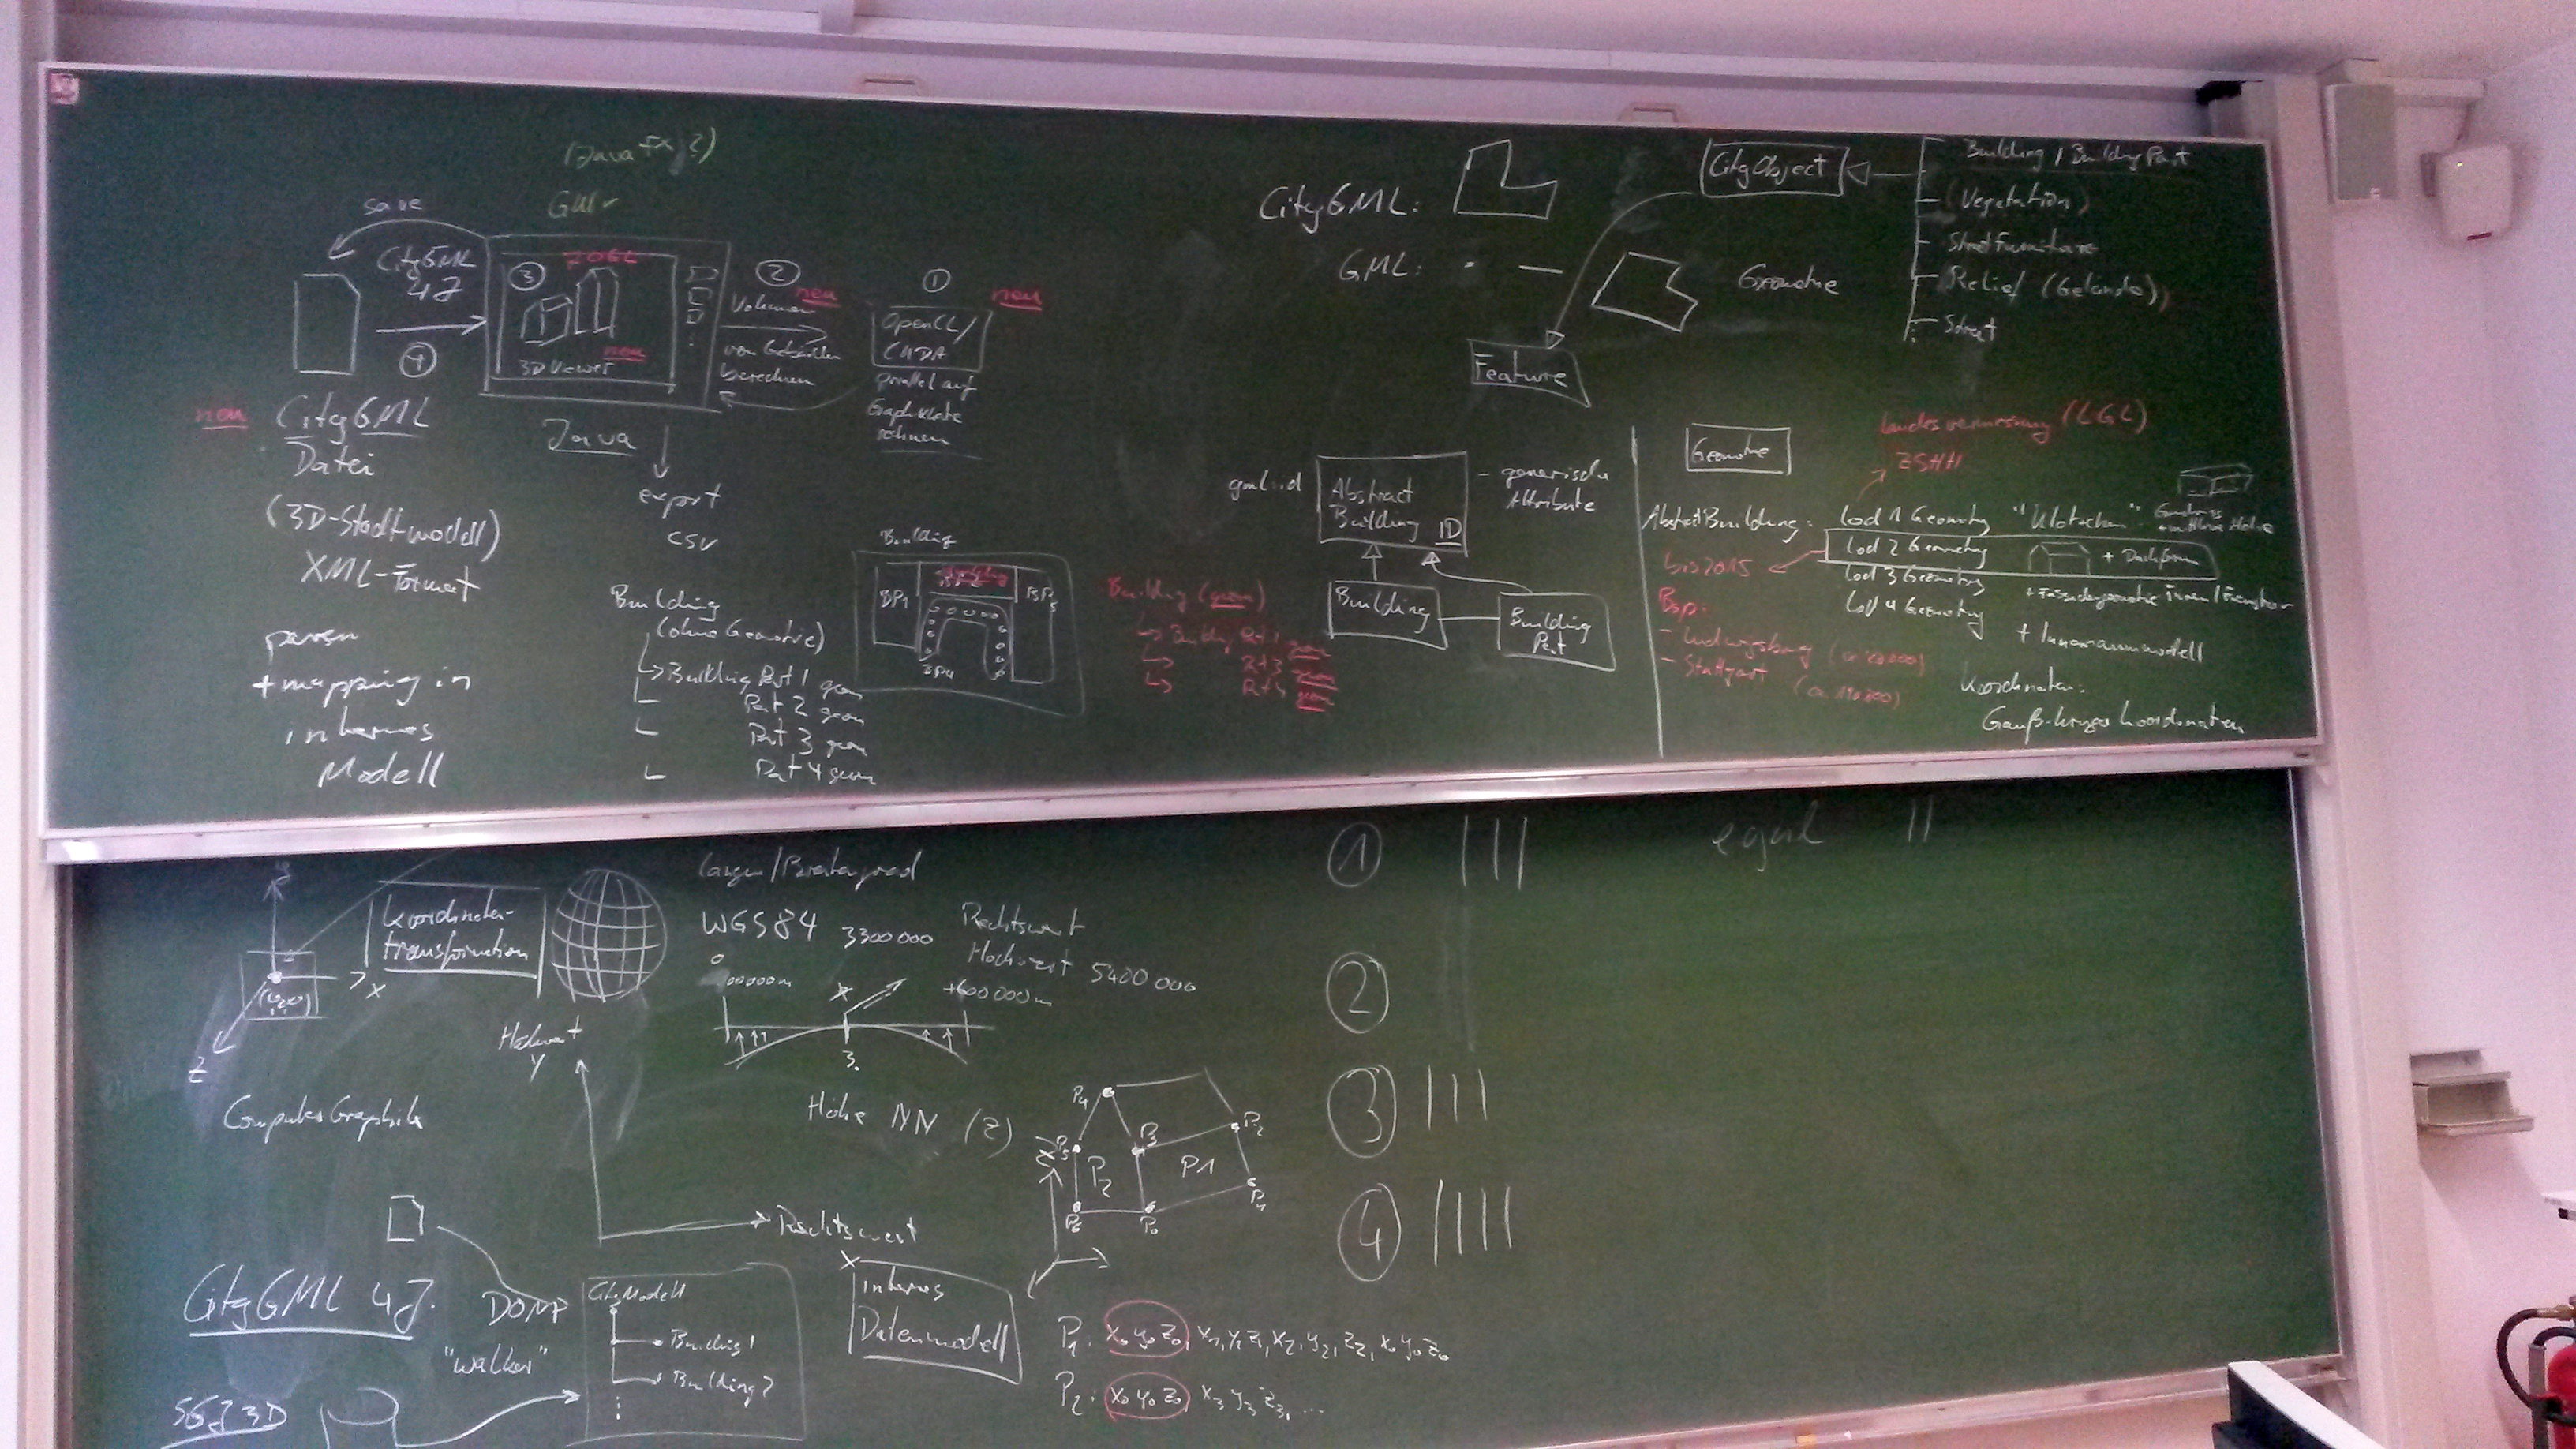 (JavaFX?)
GUI
save
CityGML
4J
4
3
JOGL
neu
3D Viewer
2
neu
Volumen
von Gebäuden
berechnen
1
neu
OpenCL/
CUDA
parallel auf
Graphikkarte
rechnen
neu
CityGML
Datei
(3D-Stadtmodell)
XML-Format
parsen
+ mapping in
internes
Modell
Java
export
CSV
Building
(ohne Geometrie)
Building Part 1 geom
Part 2 geom
Part 3 geom
Part 4 geom
Building
BP1
BP4
Building (geom)
Building Part 1 geom
geom
geom
CityGML:
GML:
Geometrie
CityObject
Feature
Building / Building Part
(Vegetation)
Relief (Gelände)
Street
gml:id
Abstract
Building ID
- generische
Attribute
Building
Building
Part
Geometrie
Landesvermessung (LGL)
ZSHH
AbstractBuilding:
lod 1 Geometry "Klötzchen"
lod 2 Geometry
+ Dachform
lod 3 Geometry
lod 4 Geometry
+ Innenraummodell
bis 2015
Bsp:
- Ludwigsburg
- Stuttgart
Koordinaten:
Gauß-Krüger Koordinaten
x
z
Koordinaten-
transformation
Computer Graphik
Längen/Breitengrad
WGS84
3300000
Rechtswert
Hochwert 5400 000
+600 000m
3.
Hochwert
y
Rechtswert
x
Höhe NN (z)
P4
P5
P3
P2
P2
P1
P6
P0
1
|||
egal
||
2
3
|||
4
||||
CityGML 4J
DOM
"Walker"
CityModell
Building 1
Building 2
internes
Datenmodell
P1: x0 y0 z0, x1, y1 z1, x2, y2, z2, x0 y0 z0
P2: x0 y0 z0, x3 y3 z3, ...